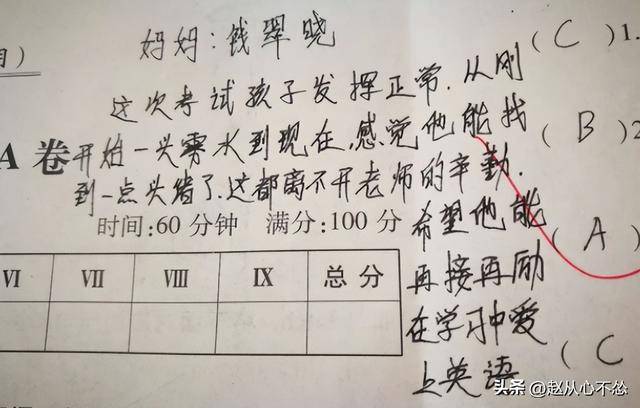 妈妈:钱翠晓
（C）1.
这次考试孩子发挥正常.从刚
A 卷
开始一头雾水到现在,感觉他能找
（B）2
到一点头绪了.这都离不开老师的辛勤.
时间:60 分钟 满分:100 分
希望他能
（A）
再接再励
在学习中爱
上英语
（C
VI VII VIII IX 总分
头条 @赵从心不怂